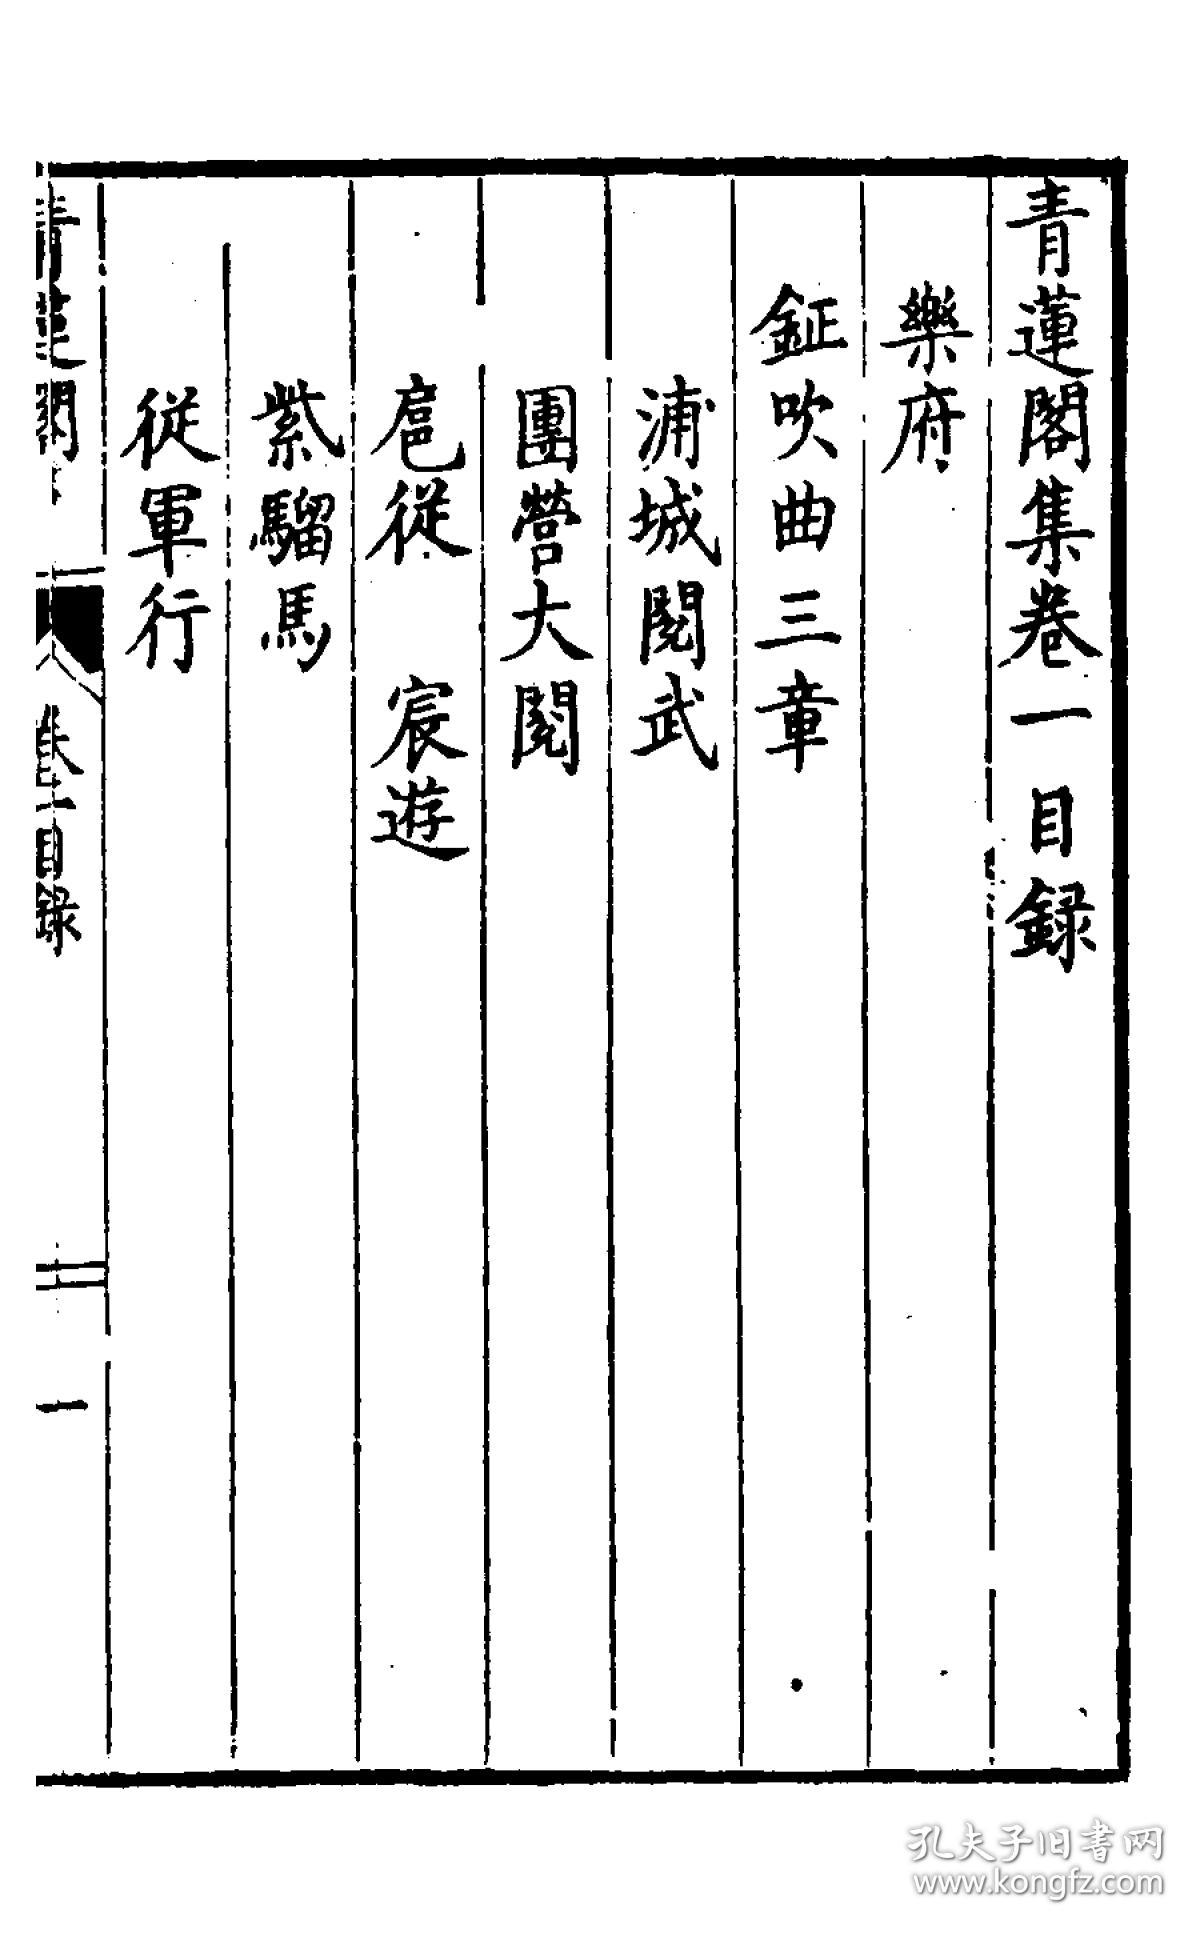 青蓮閣集卷一目録
樂府
鉦吹曲三章
浦城閱武
團營大閱
扈從 宸遊
紫騮馬
從軍行
青蓮閣集
卷一目録
一
孔夫子旧书网
www.kongfz.com